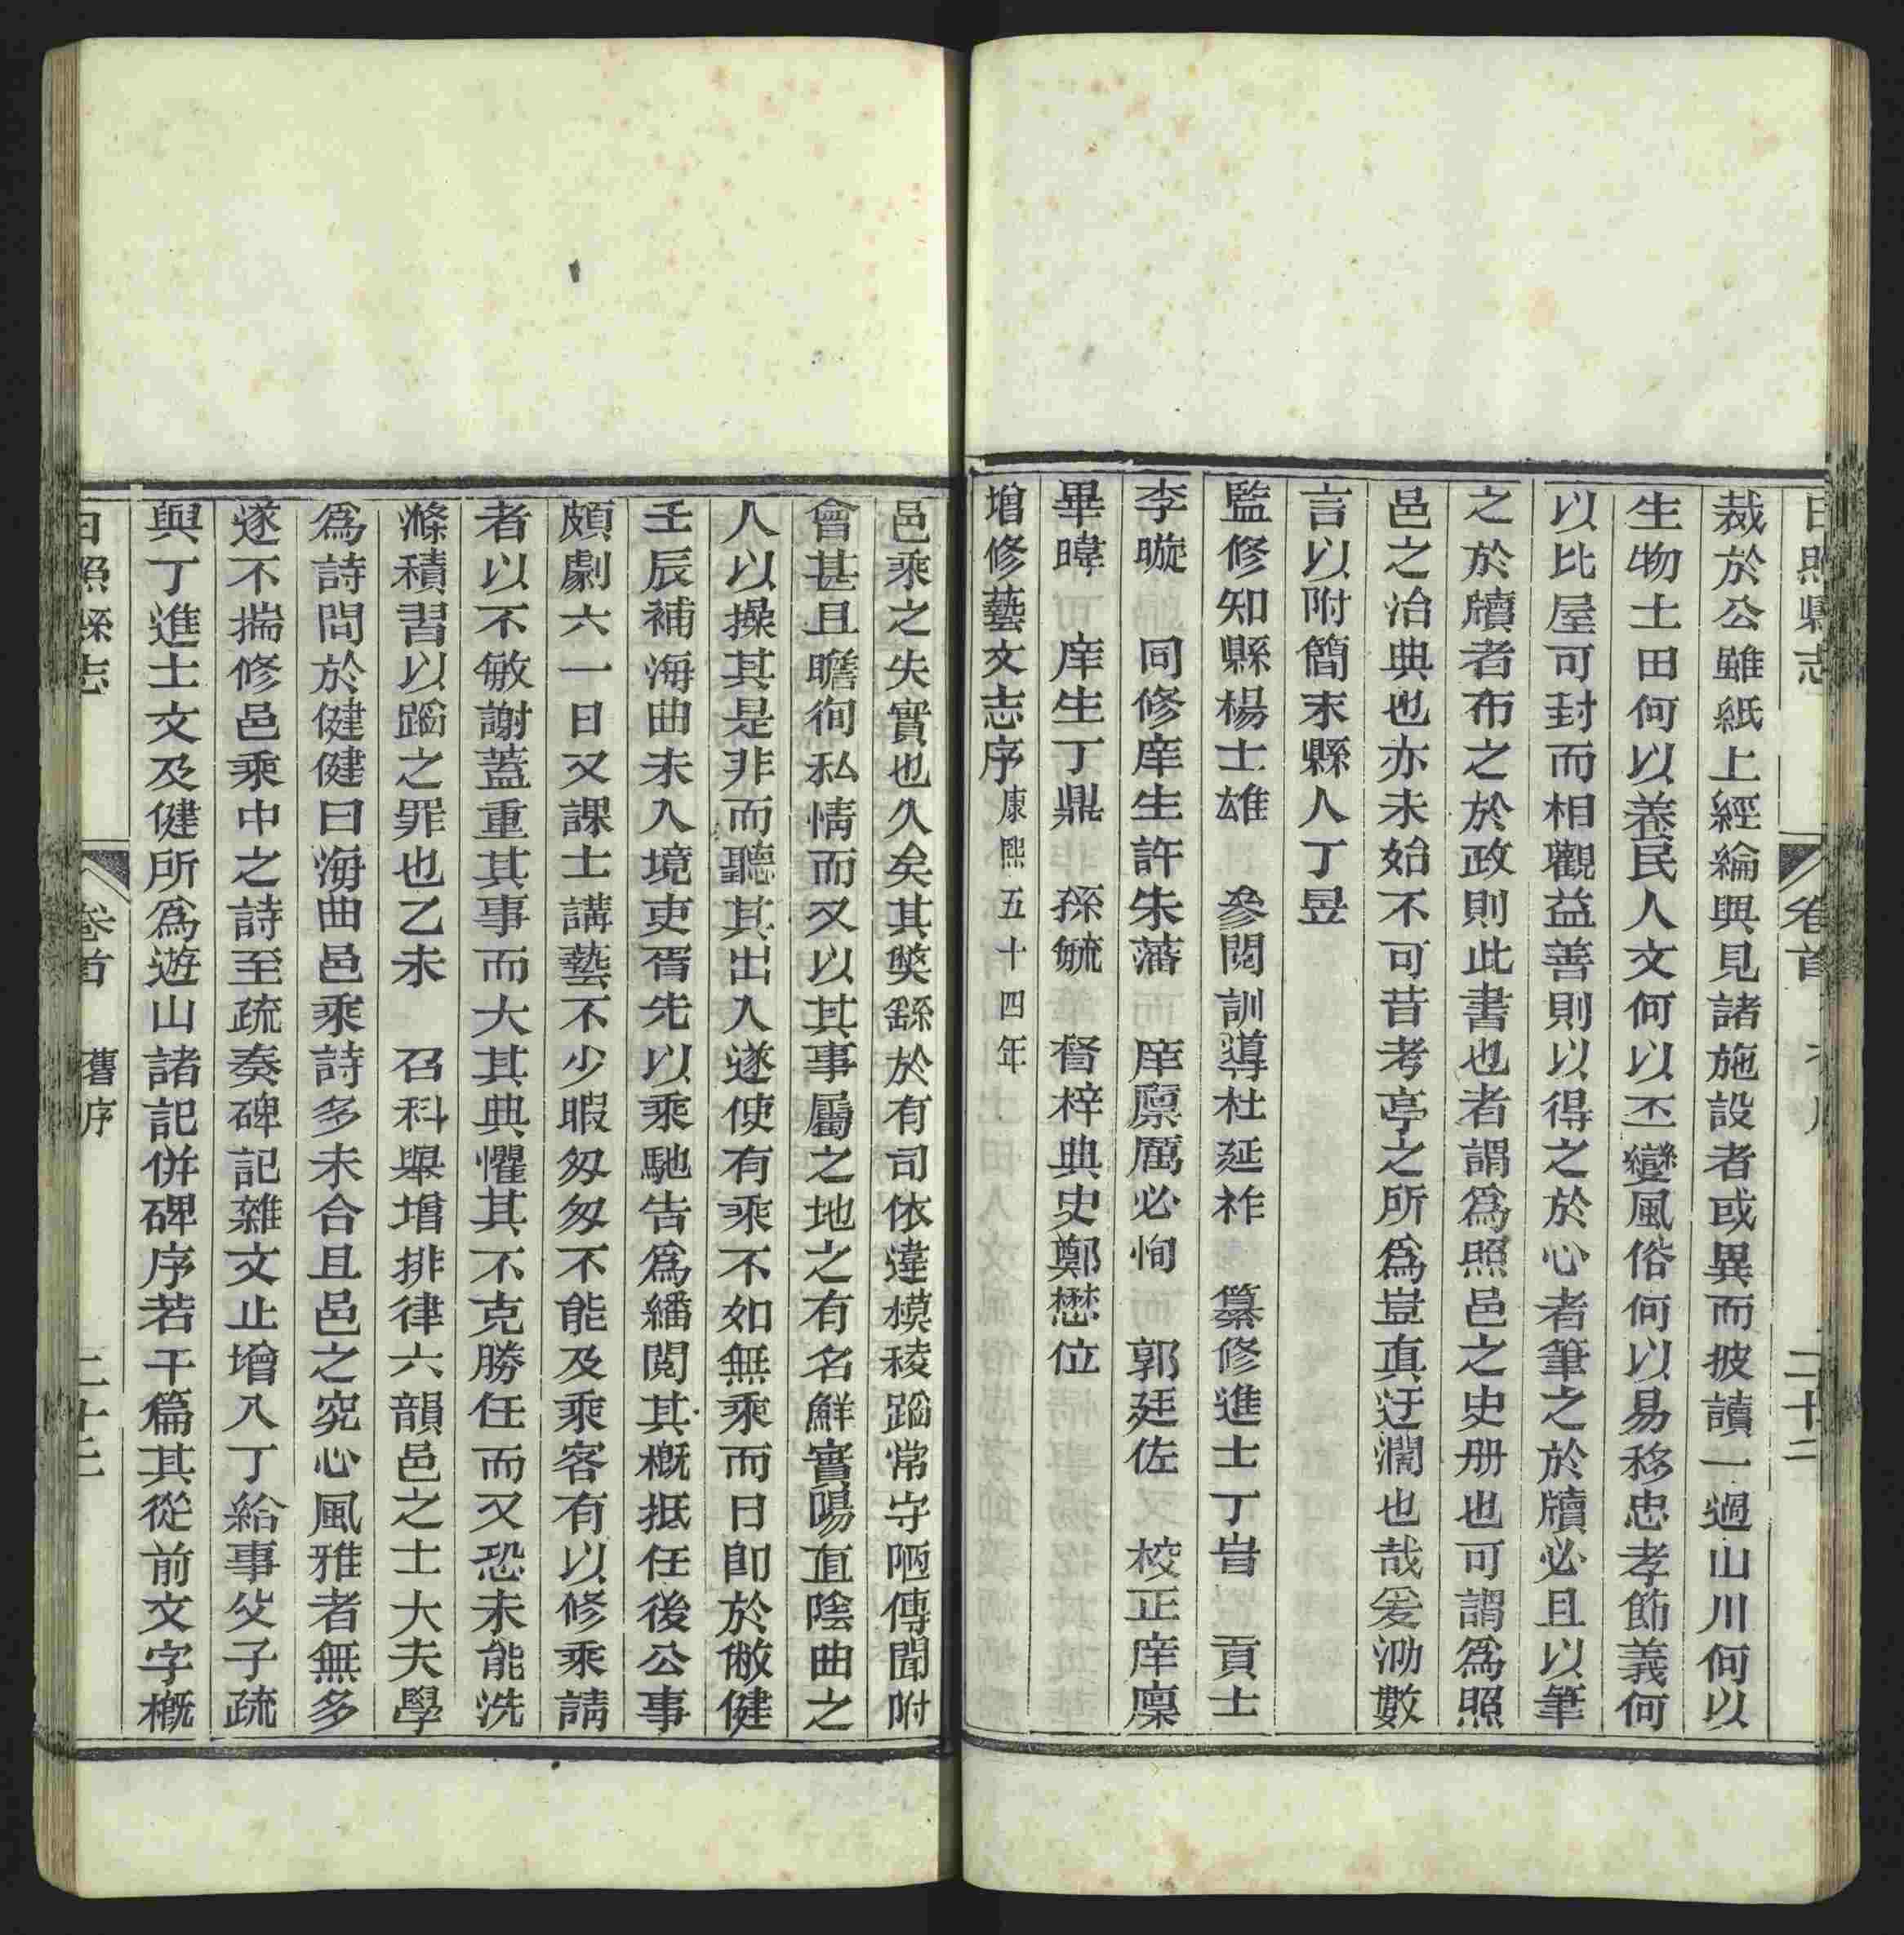 日照縣志 卷首 二十二
裁於公雖紙上經綸與見諸施設者或異而披讀一過山川何以
生物土田何以養民人文何以丕變風俗何以易移忠孝節義何
以比屋可封而相觀益善則以得之於心者筆之於牘必且以筆
之於牘者布之於政則此書也者謂爲照邑之史册也可謂爲照
邑之治典也亦未始不可昔考亭之所爲豈真迂濶也哉爰泐數
言以附簡末縣人丁昱
監修知縣楊士雄 參閱訓導杜延祚 纂修進士丁旹 貢士
李暶 同修庠生許朱藩 庠廪厲必恂 郭廷佐 校正庠廩
畢暐 庠生丁鼎 孫毓 督梓典史鄭懋位
增修藝文志序康熙五十四年
邑乘之失實也久矣其獘繇於有司依違模稜蹈常守陋傳聞附
會甚且瞻徇私情而又以其事屬之地之有名鮮實陽直陰曲之
人以操其是非而聽其出入遂使有乘不如無乘而日卽於敝健
壬辰補海曲未入境吏胥先以乘馳告爲繙閱其概抵任後公事
頗劇六一日又課士講藝不少暇匆匆不能及乘客有以修乘請
者以不敏謝蓋重其事而大其典懼其不克勝任而又恐未能洗
滌積習以蹈之罪也乙未 召科舉增排律六韻邑之士大夫學
爲詩問於健健曰海曲邑乘詩多未合且邑之究心風雅者無多
遂不揣修邑乘中之詩至疏奏碑記雜文止增入丁給事父子疏
與丁進士文及健所爲遊山諸記併碑序若干篇其從前文字概
日照縣志 卷首 舊序 二十三